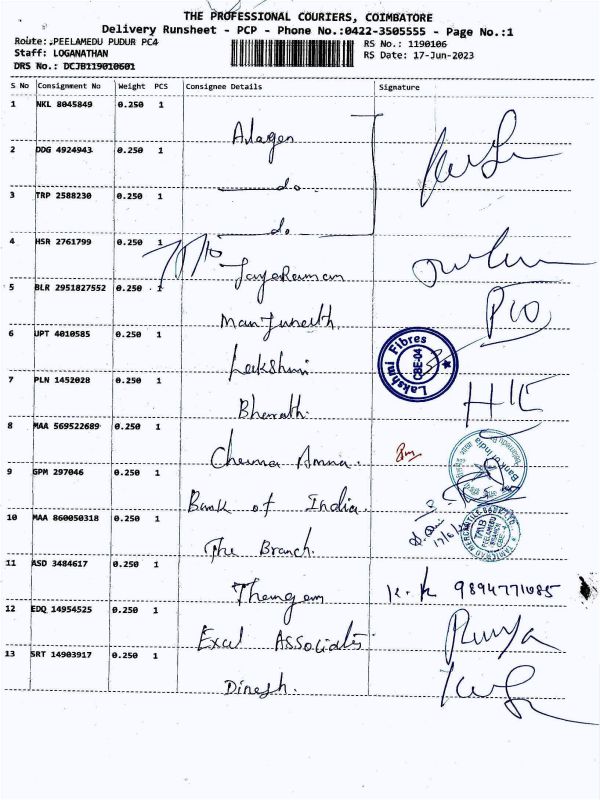 THE PROFESSIONAL COURIERS, COIMBATORE
Delivery Runsheet - PCP - Phone No.:0422-3505555 - Page No.:1
Route: PEELAMEDU PUDUR PC4
RS No.: 1190106
Staff: LOGANATHAN
RS Date: 17-Jun-2023
DRS No.: DCJB119010601
S No Consignment No Weight PCS Consignee Details Signature
1 NKL 8045849 0.250 1
2 DDG 4924943 0.250 1
do
3 TRP 2588230 0.250 1
do
4 HSR 2761799 0.250 1
JayaRaman
5 BLR 2951827552 0.250 1
Manjunath
6 UPT 4010585 0.250 1
Lakshmi
Lakshmi Fibres
CBE-04
7 PLN 1452028 0.250 1
Bharath
8 MAA 569522689 0.250 1
Bank of India
9 GPM 297046 1
Bank of India
10 MAA 860050318 0.250 1
The Branch
TMB
11 ASD 3484617 0.250 1
Thangam K.K 9894771085
12 EDQ 14954525 0.250 1
Excel Associates
13 SRT 14903917 0.250 1
Dinesh